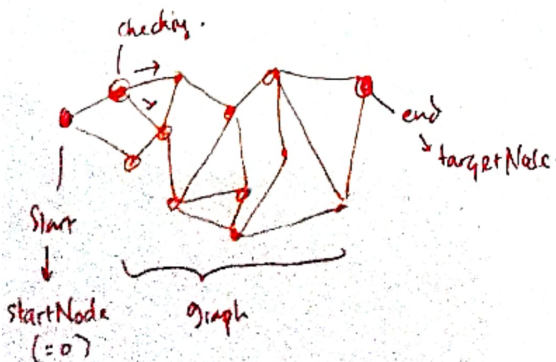 checking.
end
targetNode
Start
startNode
(=0)
graph